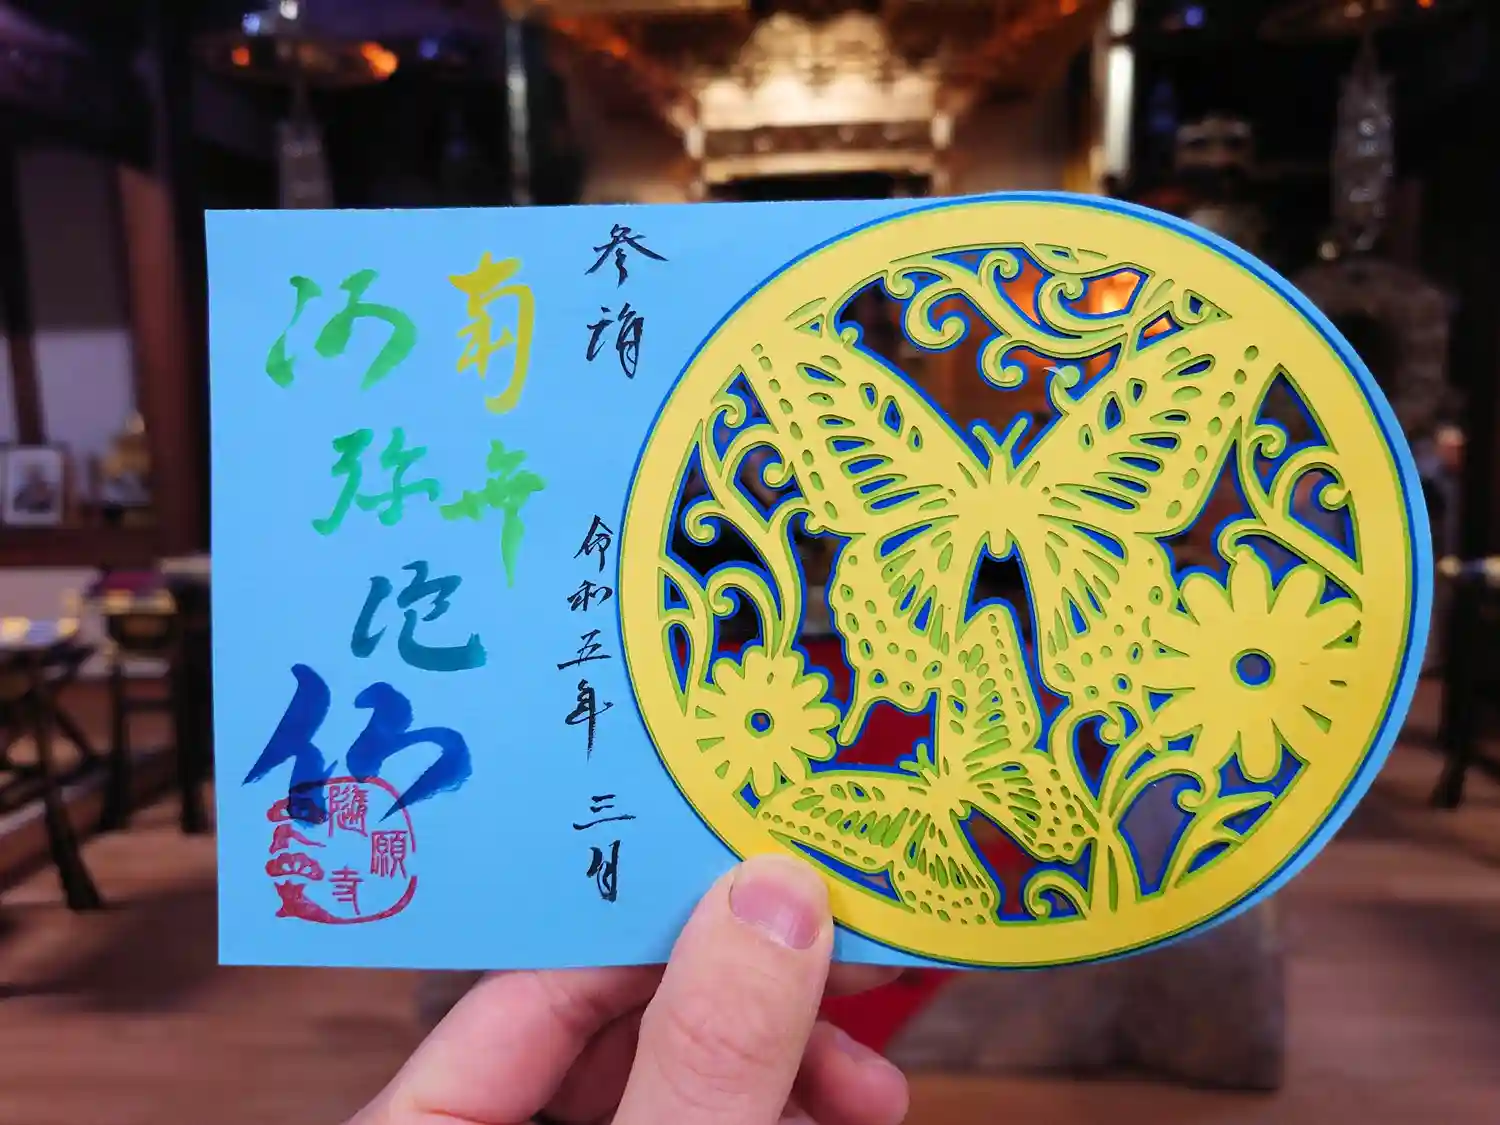 参詣 令和五年三月
南無
阿弥陀
仏
隨願寺